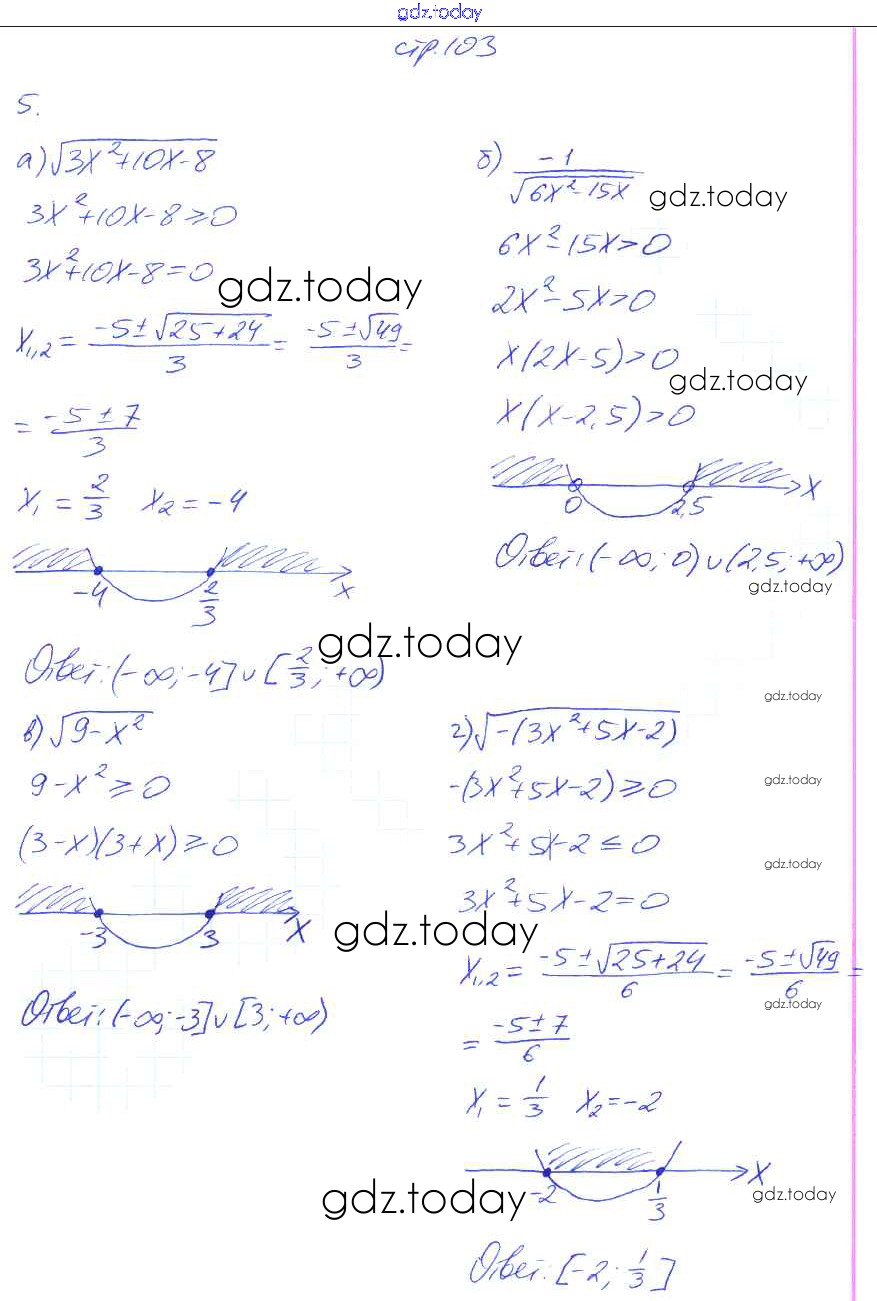 gdz.today
стр.103
5.
а) √(3x²+10x-8)
3x²+10x-8≥0
3x²+10x-8=0
gdz.today
x₁,₂ = (-5±√(25+24))/3 = (-5±√49)/3 =
= (-5±7)/3
x₁ = 2/3 x₂ = -4
-4 2/3 x
gdz.today
Ответ: (-∞; -4] ∪ [2/3; +∞)
б) -1/√(6x²-15x)
gdz.today
6x²-15x>0
2x²-5x>0
x(2x-5)>0
gdz.today
x(x-2,5)>0
0 2,5 x
Ответ: (-∞; 0) ∪ (2,5; +∞)
gdz.today
в) √(9-x²)
9-x²≥0
(3-x)(3+x)≥0
-3 3 x
gdz.today
Ответ: (-∞; -3] ∪ [3; +∞)
gdz.today
г) √(-(3x²+5x-2))
-(3x²+5x-2)≥0
gdz.today
3x²+5x-2≤0
gdz.today
3x²+5x-2=0
x₁,₂ = (-5±√(25+24))/6 = (-5±√49)/6 =
gdz.today
= (-5±7)/6
x₁ = 1/3 x₂ = -2
-2 1/3 x
gdz.today
gdz.today
Ответ: [-2; 1/3]